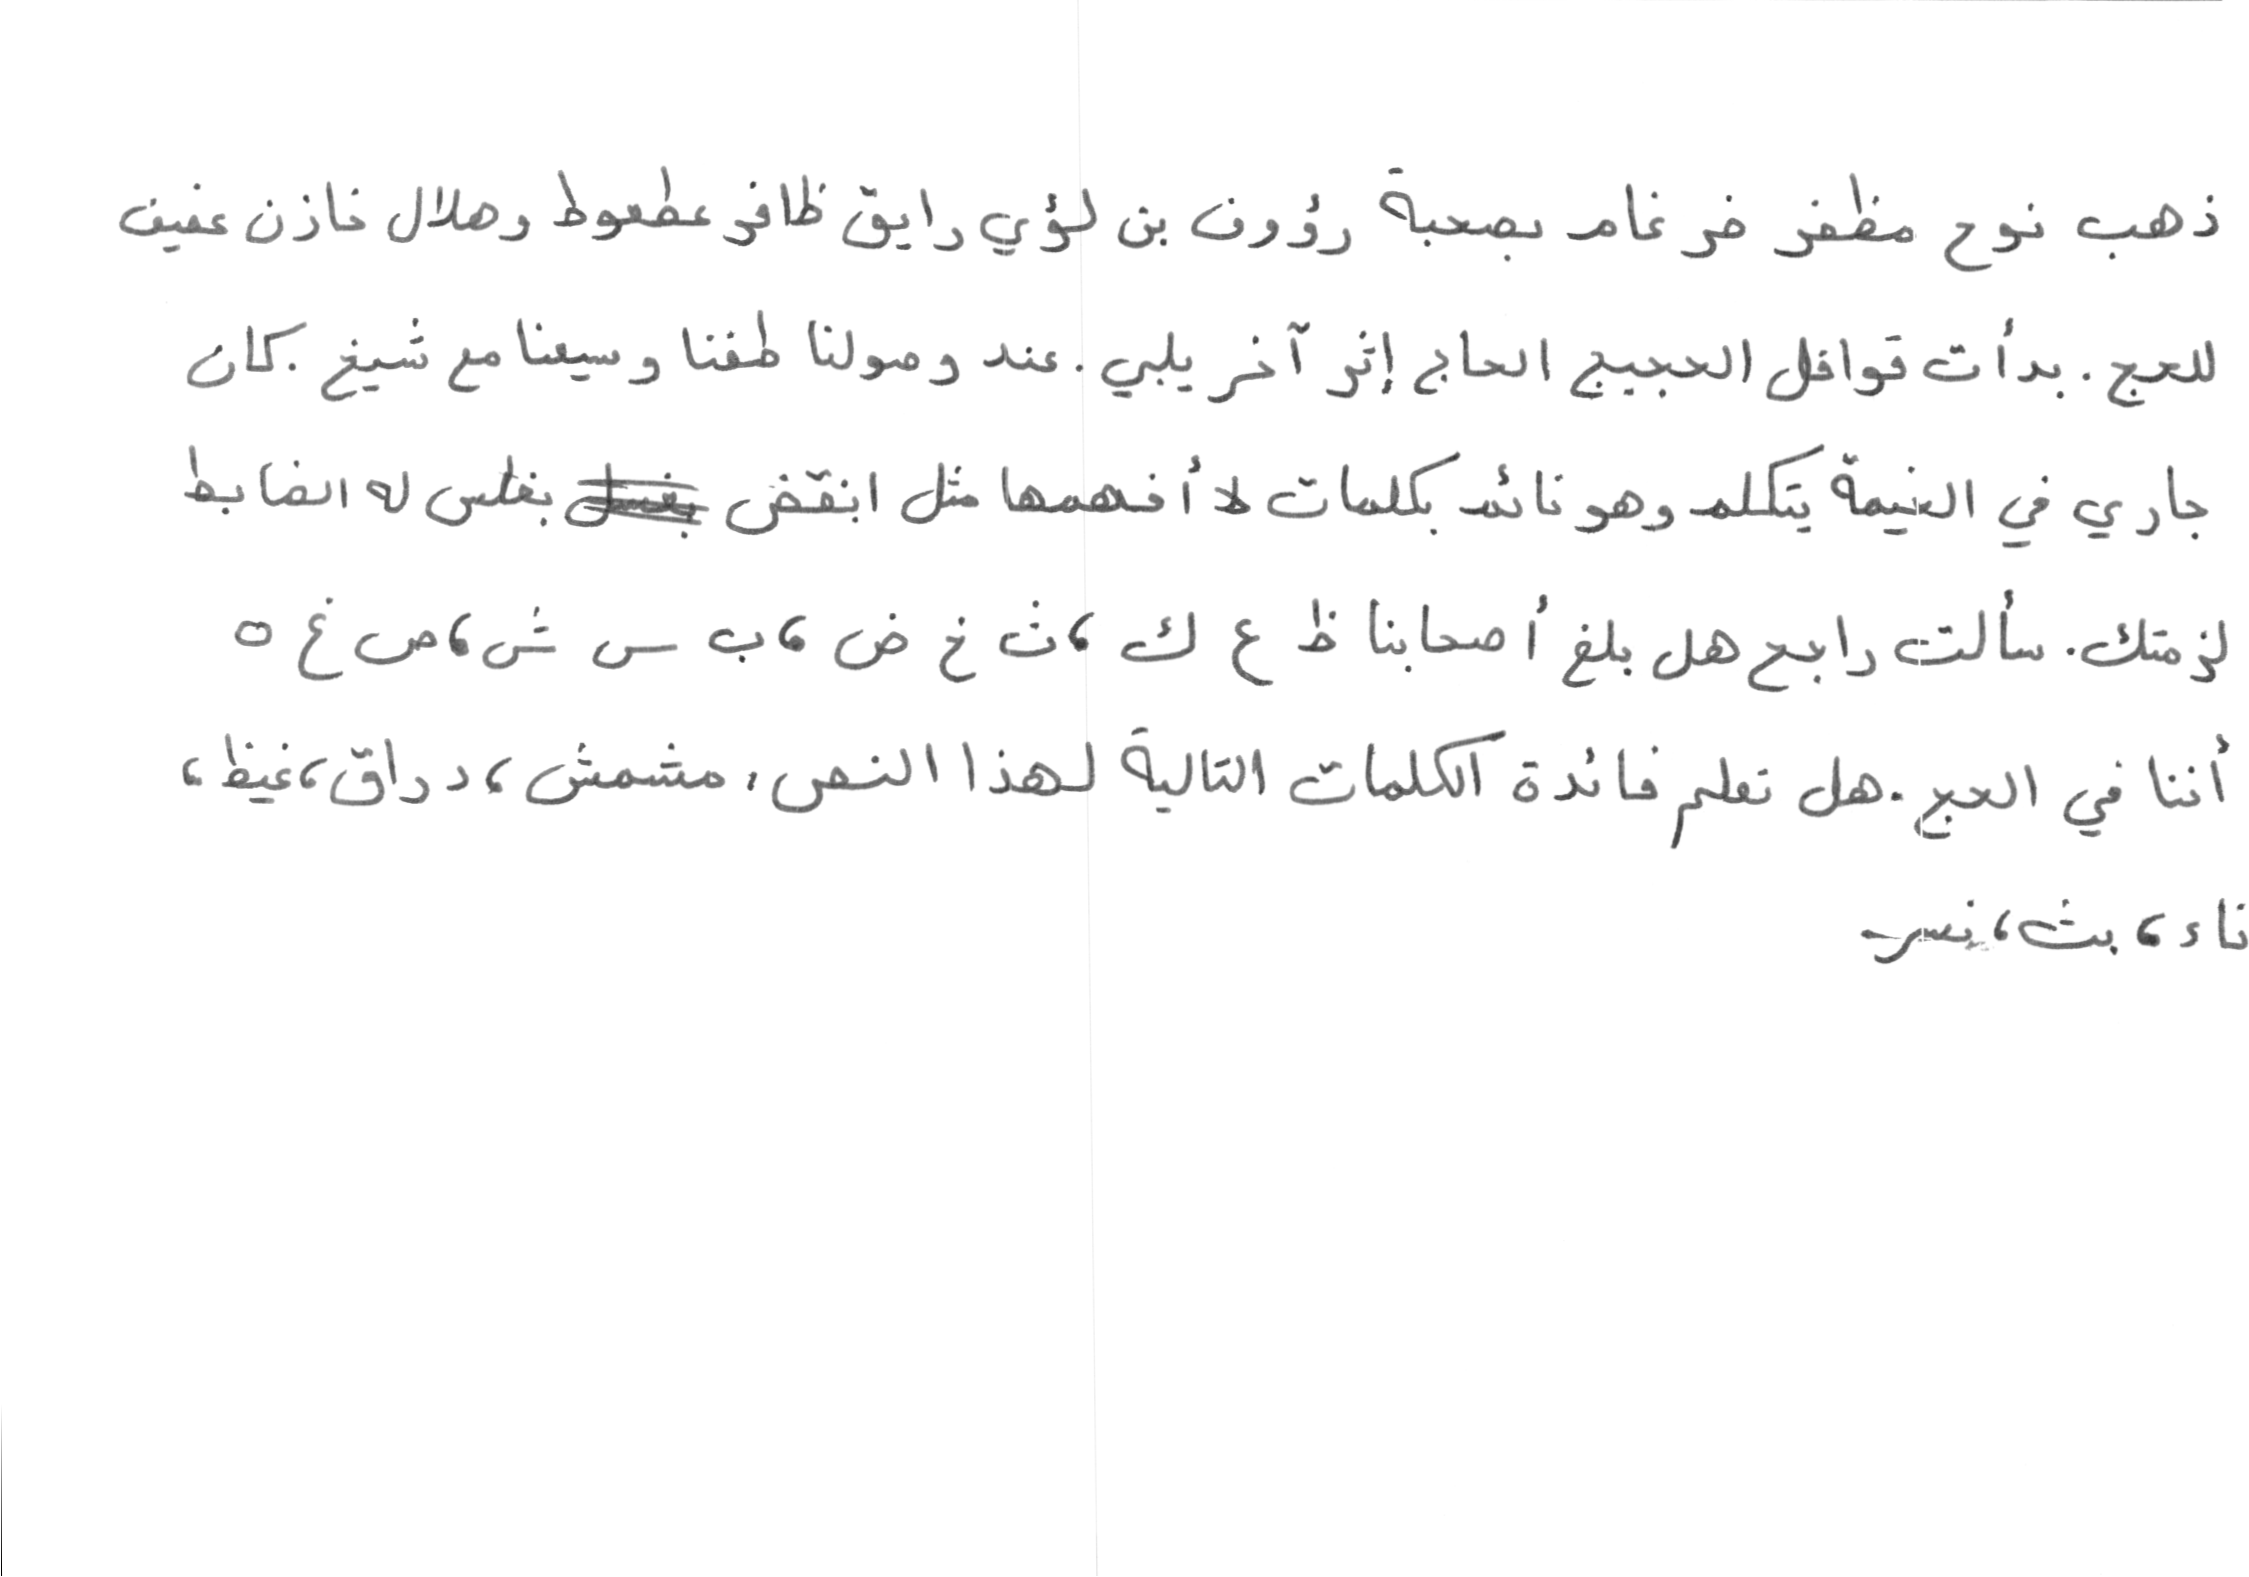 ذهب نوح مظفر ضرغام بصحبة رؤوف بن لؤي رايق ظافر عطعوط وهلال خازن عفيف
للحج. بدأت قوافل الحجيج الحاج إثر آخر يلبي. عند وصولنا طفنا وسعينا مع شيخ. كان
جاري في الخيمة يتكلم وهو نائم بكلمات لا أفهمها مثل انقض بغلس له الضابط
لزمتك. سألت رابح هل بلغ أصحابنا ظ ع ك، ث خ ض، ب س ش، ص غ ه
أننا في الحج. هل تعلم فائدة الكلمات التالية لهذا النص، مشمش، دراق، غيظ،
ناء، بث، نسر